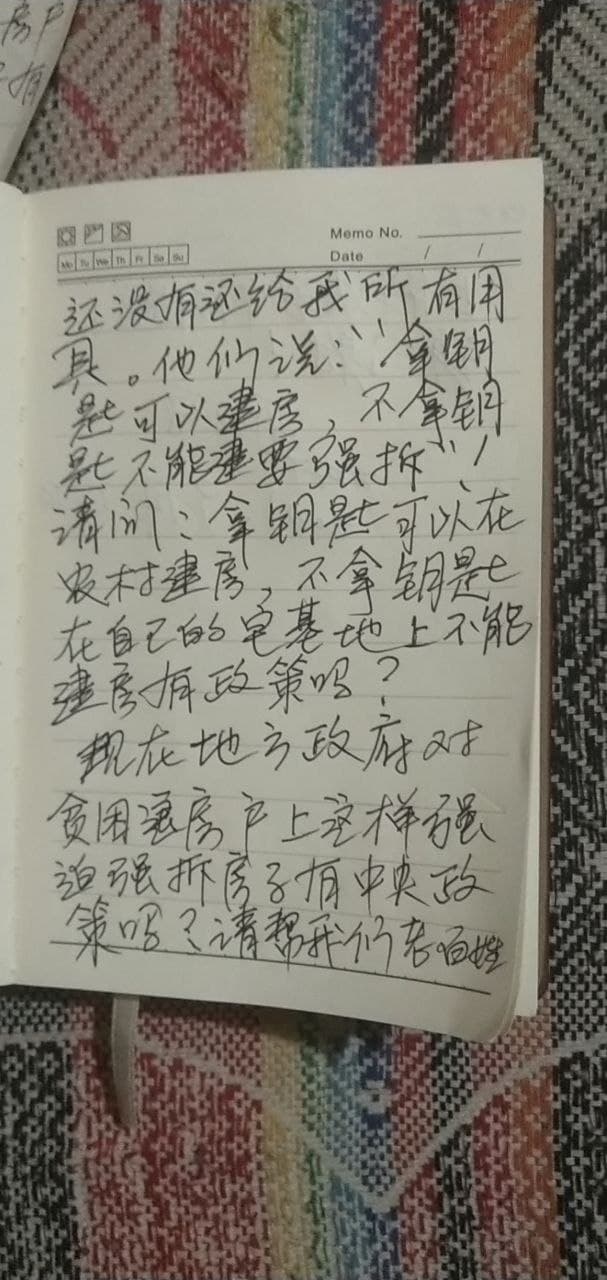 房户
子有
Memo No.
Mo Tu We Th Fr Sa Su
Date / /
还没有还给我所有用
具。他们说:“拿钥
匙可以建房,不拿钥
匙不能建要强拆”!
请问:拿钥匙可以在
农村建房,不拿钥匙
在自己的宅基地上不能
建房有政策吗?
现在地方政府对
贫困建房户上这样强
迫强拆房子有中央政
策吗?请帮我们老百姓